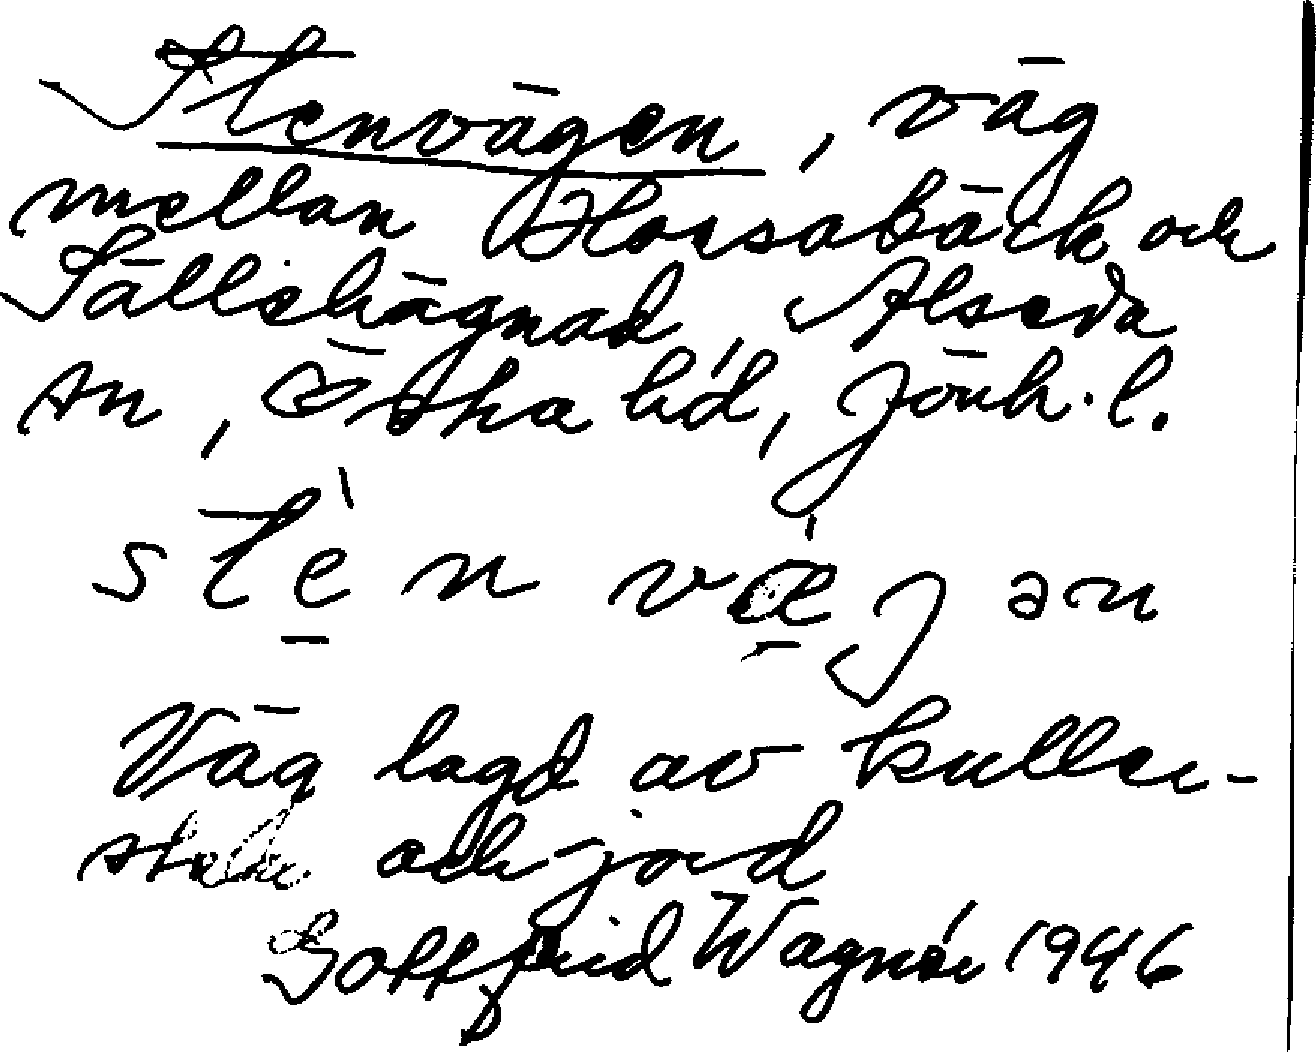 Stenvägen, väg
mellan Horsabäck och
Sällehägnad, Alseda
sn, Östra hd, Jönk. l.
stè̱n vǽ̱jən
Väg lagd av kuller-
sten och jord
Gottfrid Wagnér 1946